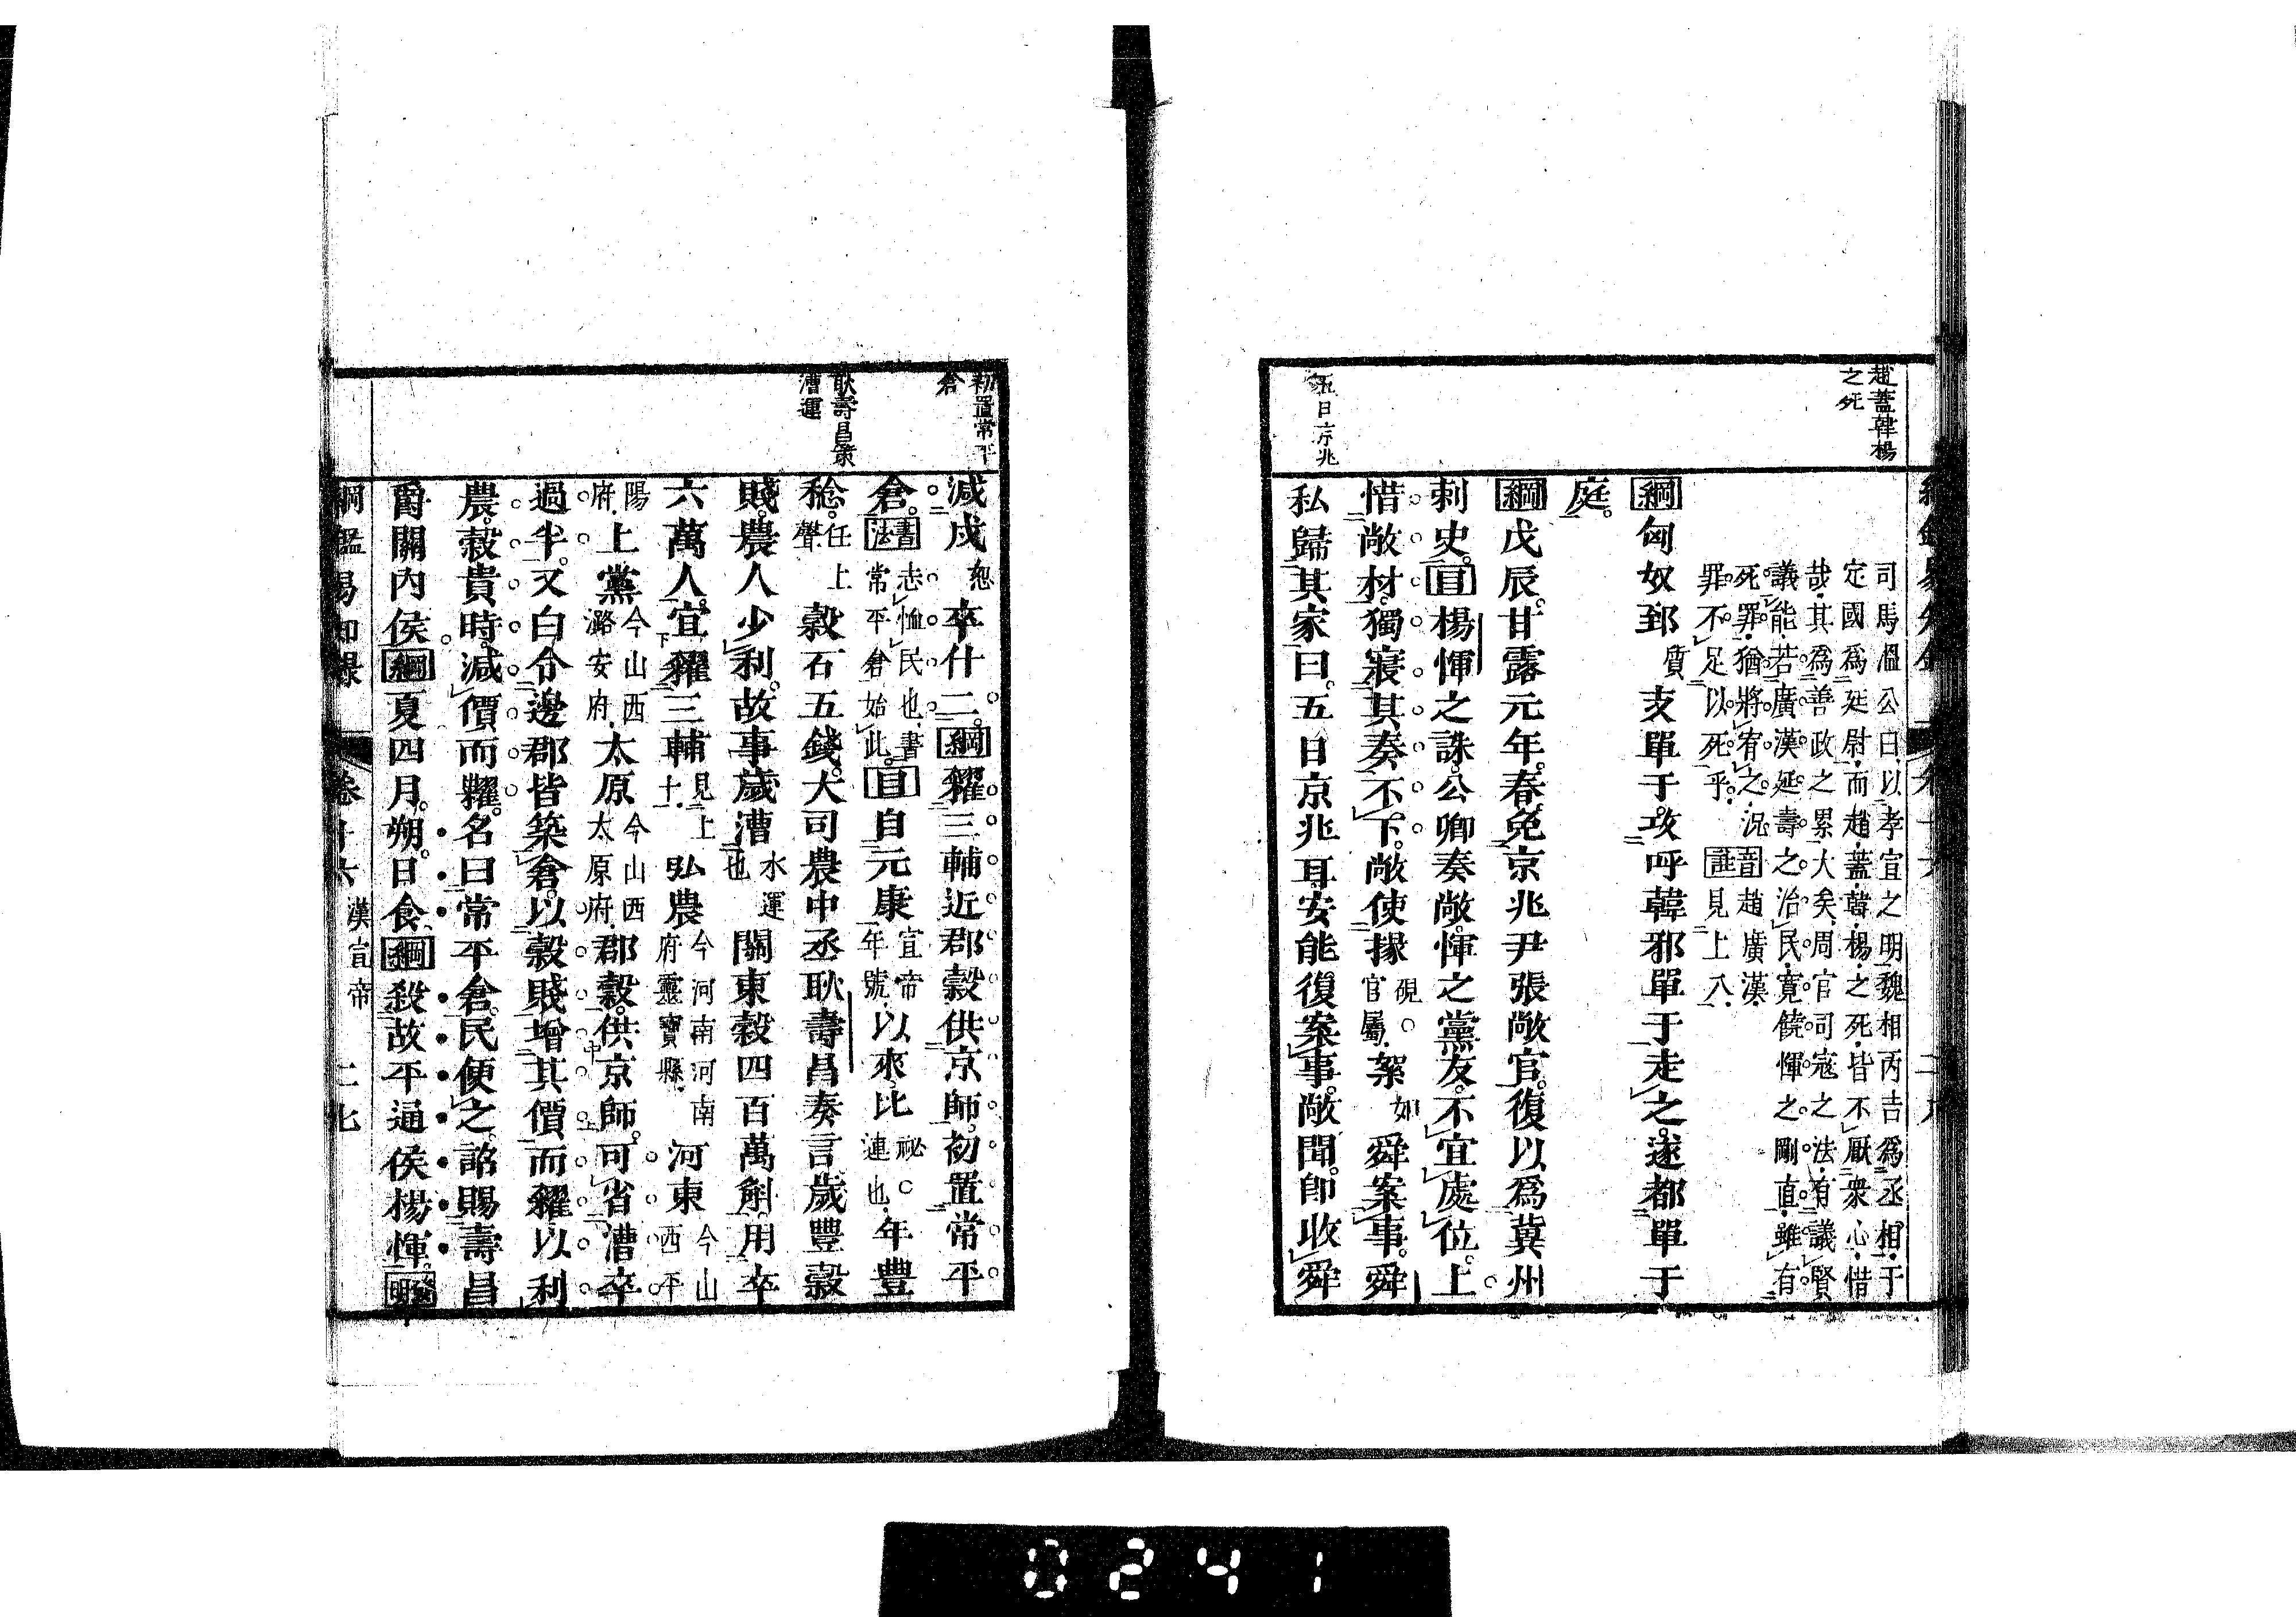 趙蓋韓楊
之死
司馬溫公曰以孝宣之明魏相丙吉爲丞相于
定國爲廷尉而趙蓋韓楊之死皆不厭衆心惜
哉其爲善政之累大矣周官司寇之法有議賢
議能若廣漢延壽之治民寬饒惲之剛直雖有
死罪猶將宥之況
罪不足以死乎
音趙廣漢
註見上八
綱匈奴郅質支單于攻呼韓邪單于走之遂都單于
庭
綱戊辰甘露元年春免京兆尹張敞官復以爲冀州
刺史目楊惲之誅公卿奏敞惲之黨友不宜處位上
惜敞材獨寢其奏不下敞使掾硯官屬絮如舜案事舜
私歸其家曰五日京兆耳安能復案事敞聞卽收舜
五日京兆
初置常平
倉
減戍恕卒什二綱糴三輔近郡穀供京師初置常平
倉書法志恤民也書常平倉始此目自元康宣帝年號以來比祕連也年豐
耿壽昌策
漕運
稔任上聲穀石五錢大司農中丞耿壽昌奏言歲豐穀
賤農人少利故事歲漕水運也關東穀四百萬斛用卒
六萬人宜糴三輔見上十弘農今河南河南府靈寶縣河東今山西平
陽府上黨今山西潞安府太原今山西太原府郡穀供京師可省漕卒
過半又白令邊郡皆築倉以穀賤增其價而糴以利
農穀貴時減價而糶名曰常平倉民便之詔賜壽昌
爵關內侯綱夏四月朔日食綱殺故平通侯楊惲發明
綱鑑易知錄 卷十六 漢宣帝 二七